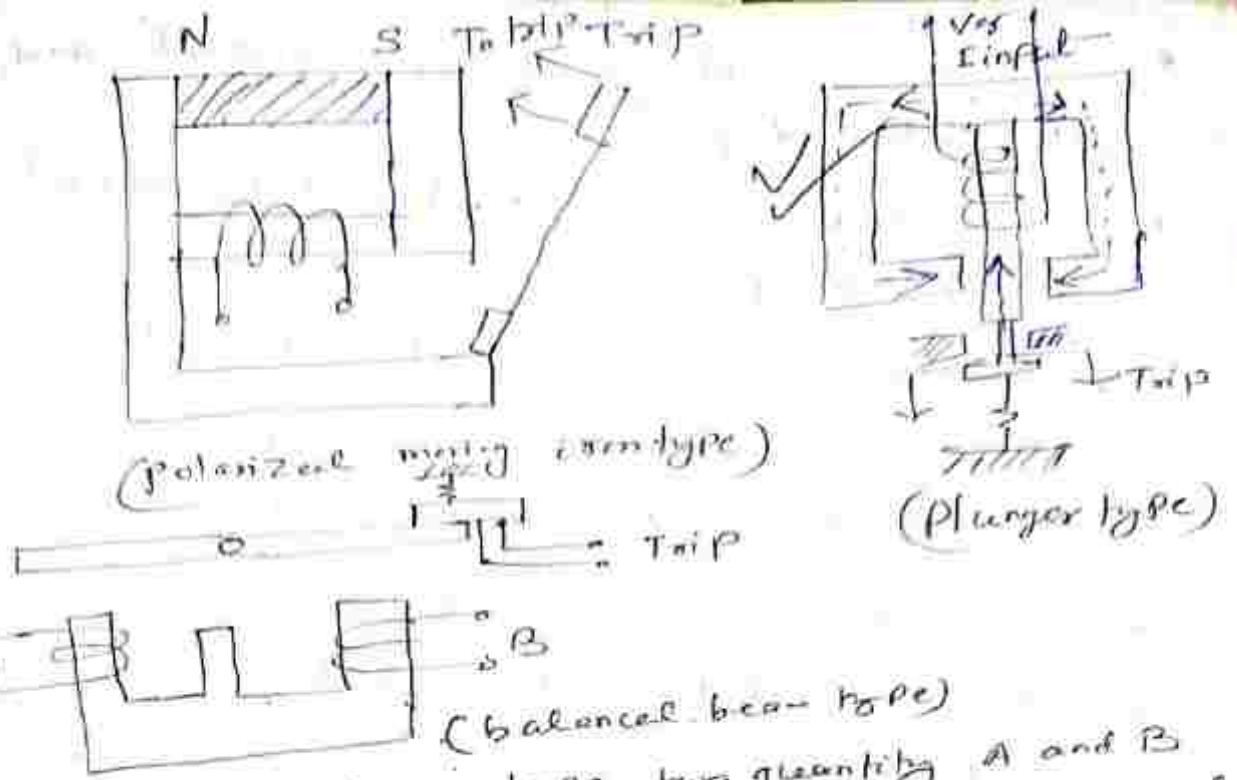 N S To trip
Trip
V or
I input
Trip
(polarized moving iron type)
(plunger type)
Trip
B
(balanced beam type)
two quantity A and B